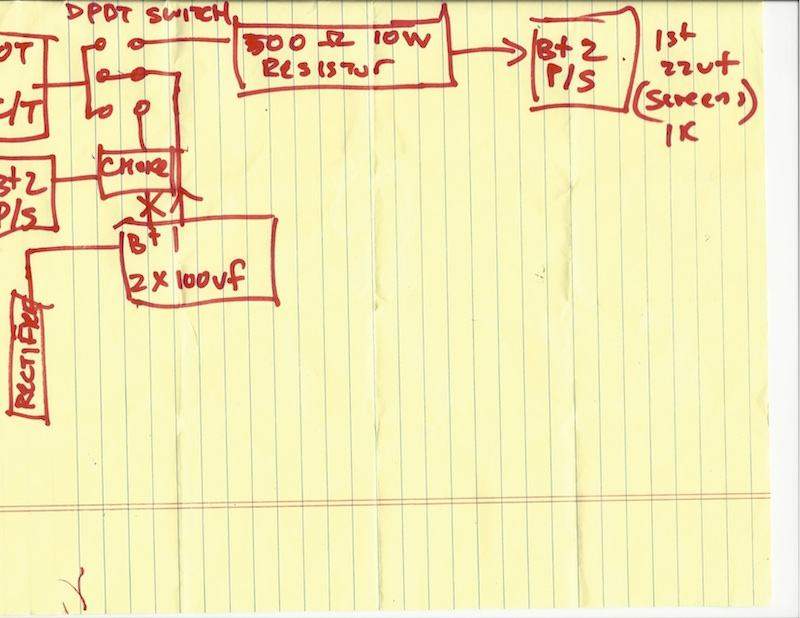 DPDT SWITCH
OT
C/T
500 Ω 10W
Resistor
B+ 2
P/S
1st
22uf
(Screens)
1K
CHOKE
B+ 2
P/S
B+ 1
2 x 100uf
RECTIFIER